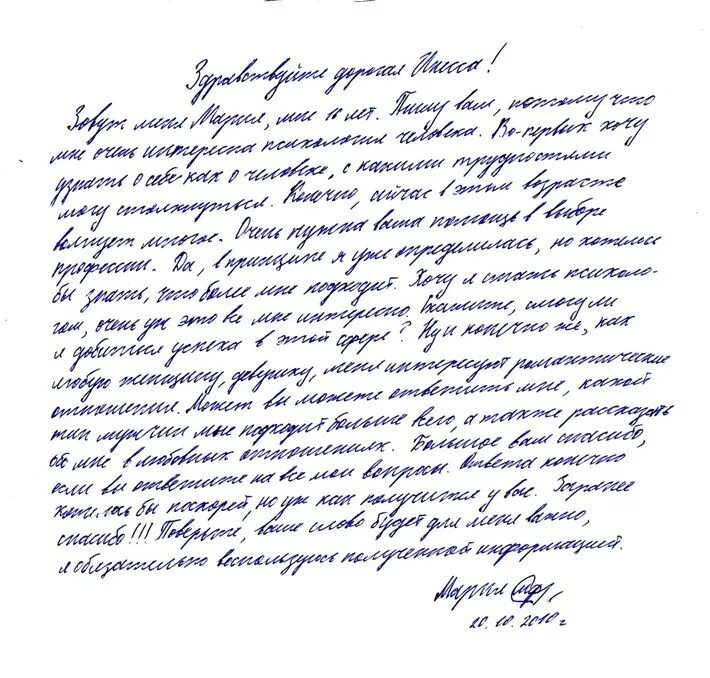 Здравствуйте дорогая Инесса!
Зовут меня Мария, мне 16 лет. Пишу вам, потому что
мне очень интересна психология человека. Во-первых хочу
узнать о себе как о человеке, с какими трудностями
могу столкнуться. Конечно, сейчас в этом возрасте
волнует многое. Очень нужна ваша помощь в выборе
профессии. Да, в принципе я уже определилась, но хотелось
бы знать, что более мне подходит. Хочу я стать психоло-
гом, очень уж это все мне интересно. Скажите, смогу ли
я добиться успеха в этой сфере? Ну и конечно же, как
любую женщину, девушку, меня интересуют романтические
отношения. Может вы можете ответить мне, какой
тип мужчин мне подходит больше всего, а также рассказать
обо мне в любовных отношениях. Большое вам спасибо,
если вы ответите на все мои вопросы. Ответа конечно
хотелось бы поскорей, но уж как получится у вас. Заранее
спасибо!!! Поверьте, ваше слово будет для меня важно,
я обязательно воспользуюсь полученной информацией.
Мария
20.10.2010 г